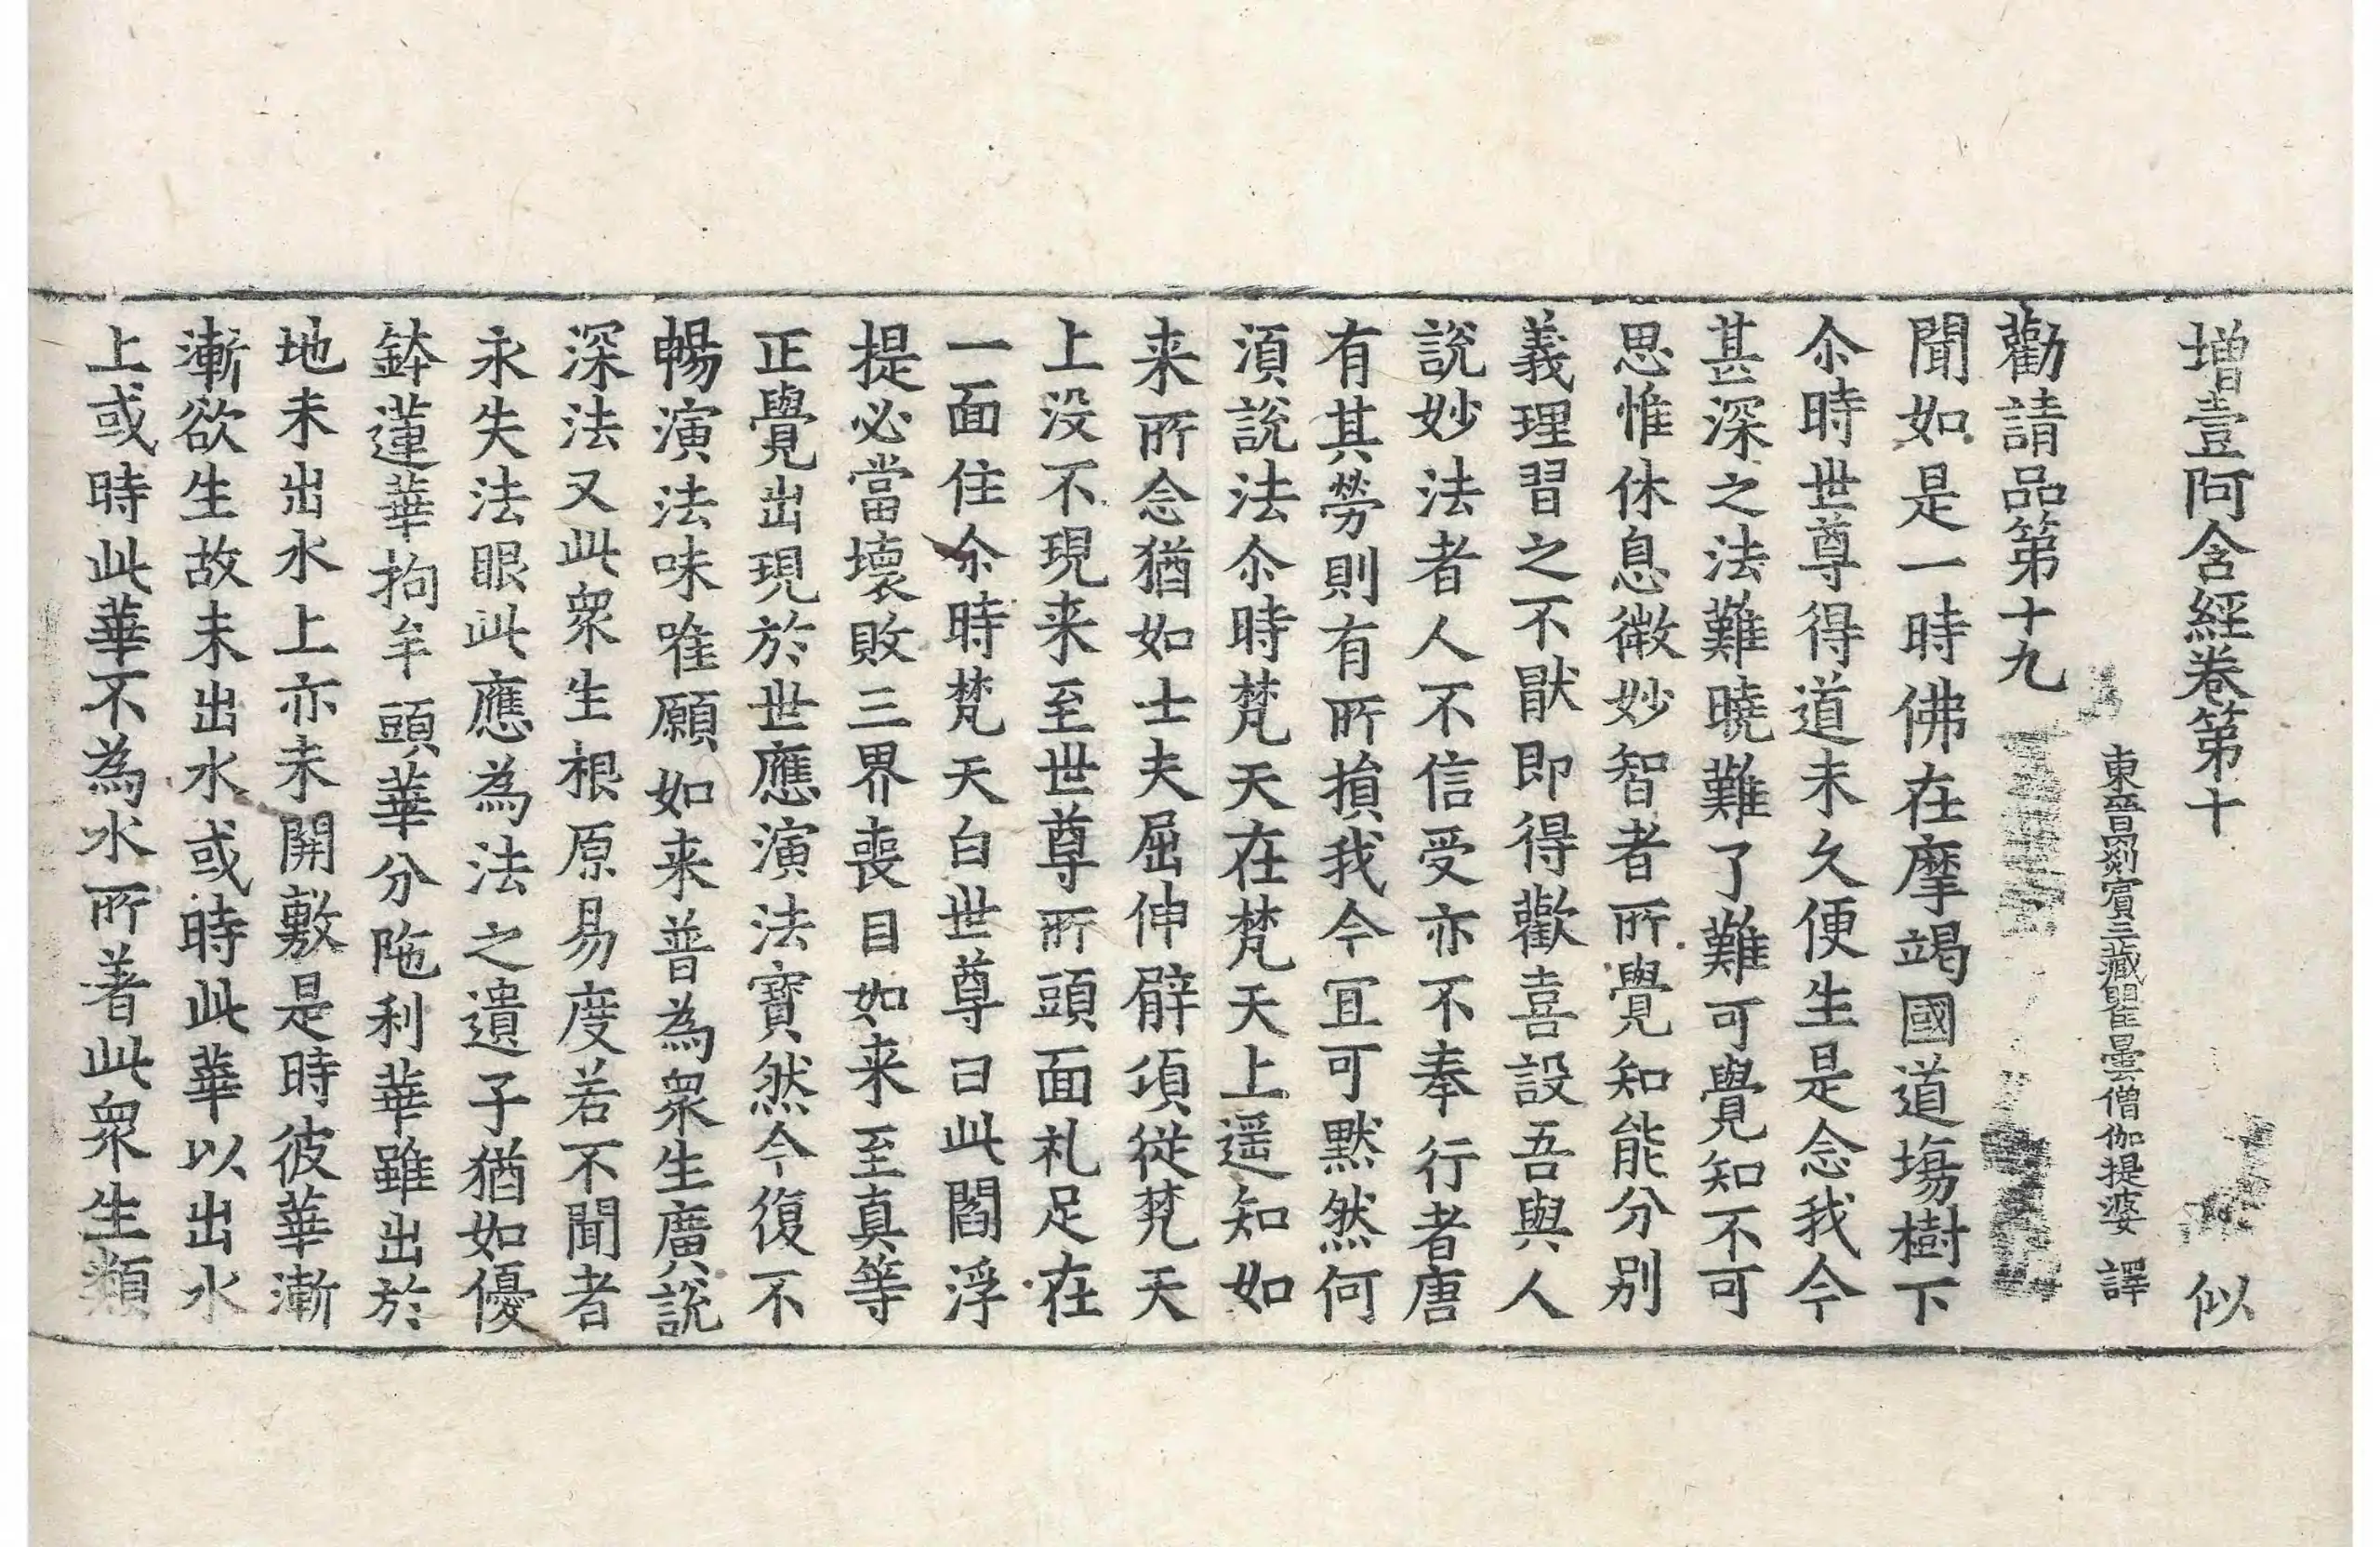 增壹阿含經卷第十 似
東晉罽賓三藏瞿曇僧伽提婆 譯
勸請品第十九
聞如是一時佛在摩竭國道場樹下
尒時世尊得道未久便生是念我今
甚深之法難曉難了難可覺知不可
思惟休息微妙智者所覺知能分別
義理習之不猒即得歡喜設吾與人
說妙法者人不信受亦不奉行者唐
有其勞則有所損我今宜可默然何
湏說法尒時梵天在梵天上遥知如
来所念猶如士夫屈伸臂頃從梵天
上沒不現来至世尊所頭面礼足在
一面住尒時梵天白世尊曰此閻浮
提必當壞敗三界喪目如来至真等
正覺出現於世應演法寶然今復不
暢演法味唯願如来普為衆生廣說
深法又此衆生根原易度若不聞者
永失法眼此應為法之遺子猶如優
鉢蓮華拘牟頭華分陁利華雖出於
地未出水上亦未開敷是時彼華漸
漸欲生故未出水或時此華以出水
上或時此華不為水所著此衆生類